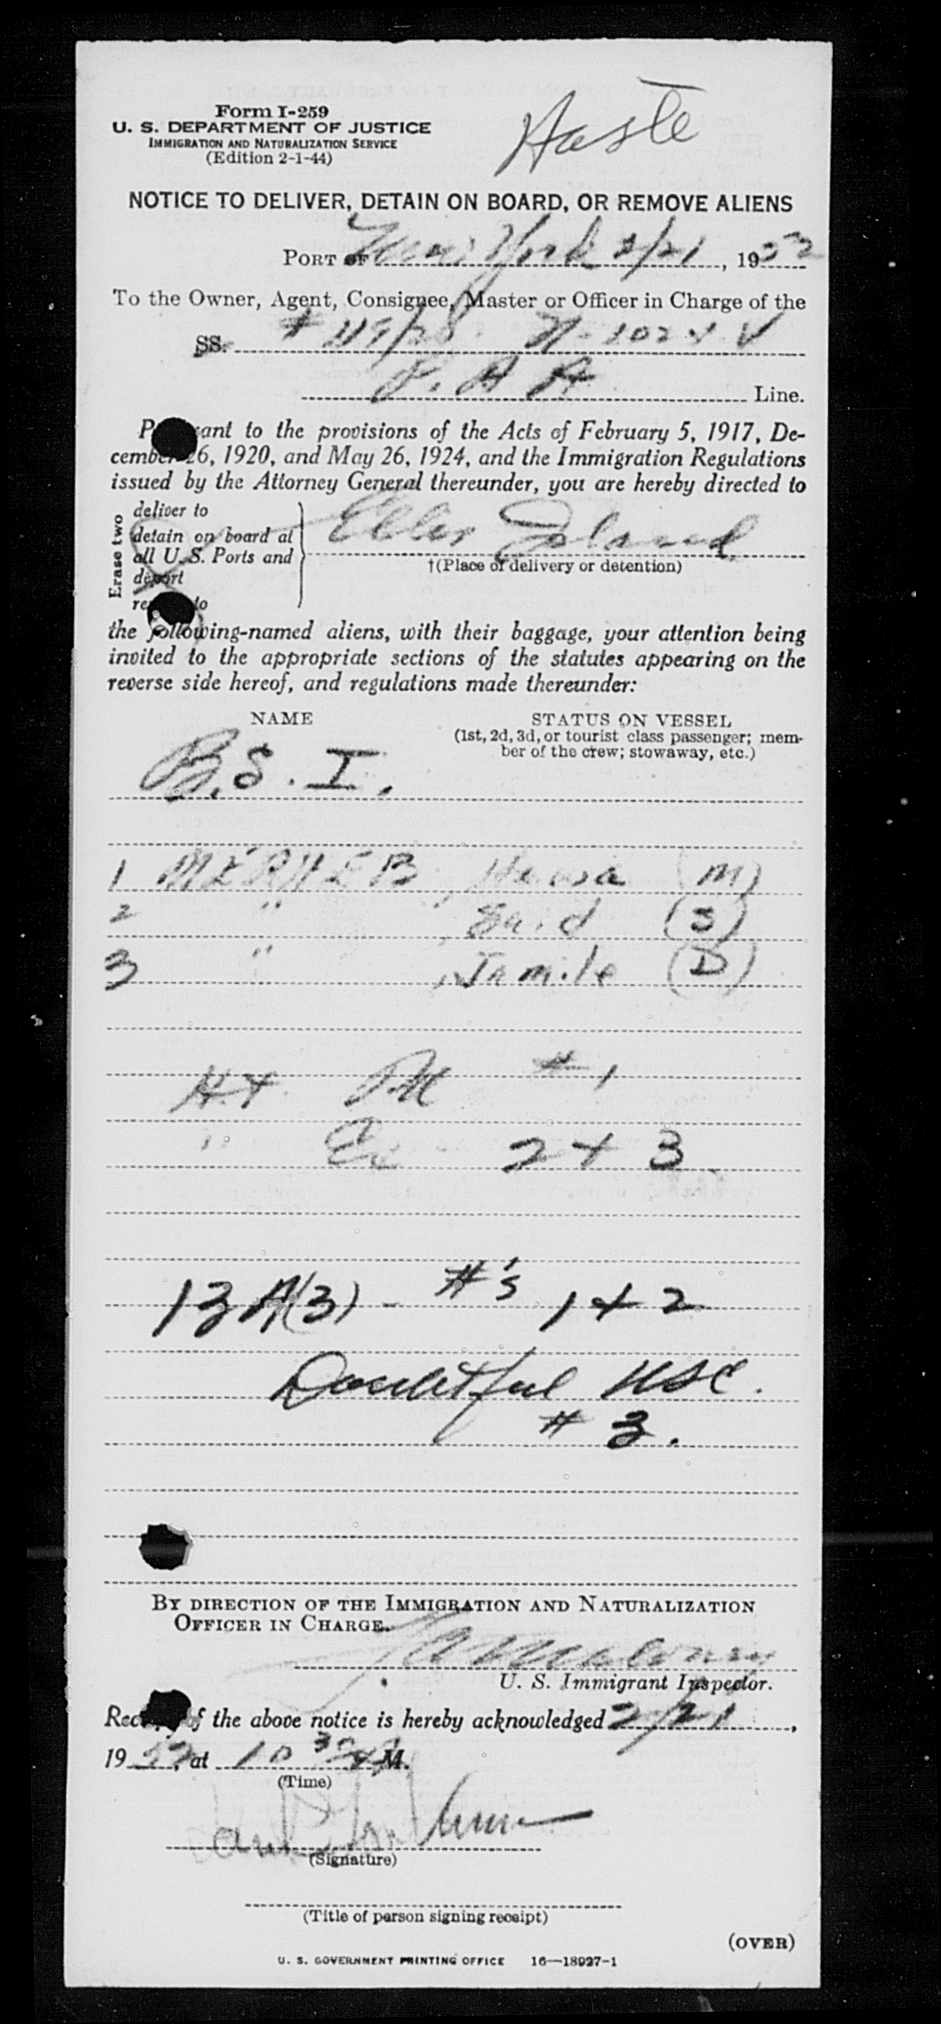 Form I-259
U. S. DEPARTMENT OF JUSTICE
IMMIGRATION AND NATURALIZATION SERVICE
(Edition 2-1-44)
Haste
NOTICE TO DELIVER, DETAIN ON BOARD, OR REMOVE ALIENS
PORT OF New York 2/21, 1952
To the Owner, Agent, Consignee, Master or Officer in Charge of the
SS. #
P. A A Line.
P ant to the provisions of the Acts of February 5, 1917, De-
cember 26, 1920, and May 26, 1924, and the Immigration Regulations
issued by the Attorney General thereunder, you are hereby directed to
Erase two
deliver to
detain on board at
all U. S. Ports and
deport
re to
Ellis Island
†(Place of delivery or detention)
the following-named aliens, with their baggage, your attention being
invited to the appropriate sections of the statutes appearing on the
reverse side hereof, and regulations made thereunder:
NAME STATUS ON VESSEL
(1st, 2d, 3d, or tourist class passenger; mem-
ber of the crew; stowaway, etc.)
B. S. I.
1 MERHEB, (M)
2 " , Said (S)
3 " , Jamile (D)
#1
" 2 + 3
13 A(3) - #'s 1 + 2
Doubtful USC.
# 3.
BY DIRECTION OF THE IMMIGRATION AND NATURALIZATION
OFFICER IN CHARGE.
U. S. Immigrant Inspector.
Rec of the above notice is hereby acknowledged 2/21,
1952, at 10 30 A M.
(Time)
(Signature)
(Title of person signing receipt)
(OVER)
U. S. GOVERNMENT PRINTING OFFICE 16—18927-1